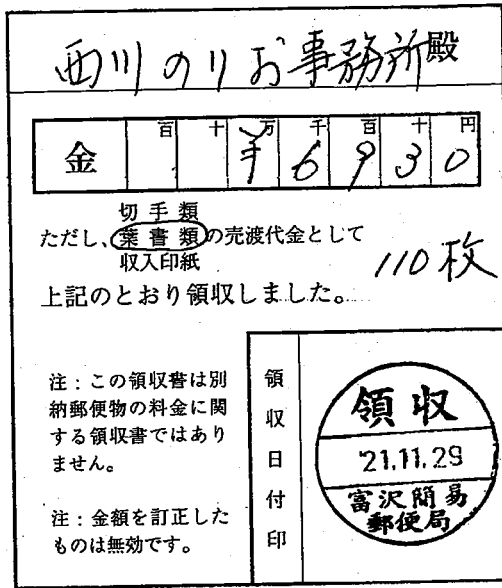 西川のりお事務所殿
百 十 万 千 百 十 円
金 ¥6930
切手類
ただし、葉書類の売渡代金として
収入印紙
110枚
上記のとおり領収しました。
注:この領収書は別
納郵便物の料金に関
する領収書ではあり
ません。
注:金額を訂正した
ものは無効です。
領収日付印
領収
21.11.29
富沢簡易
郵便局